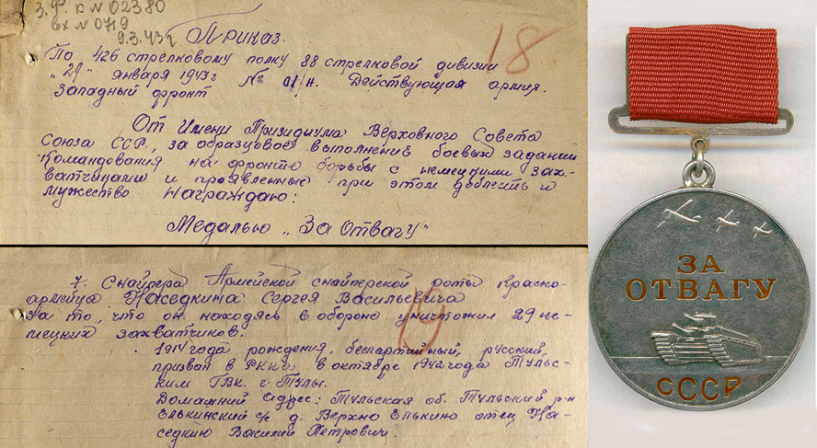 З.Ф. к № 02380
Вх № 0719
9.3.43г
Приказ.
18
По 426 стрелковому полку 88 стрелковой дивизии
„29" января 1943г № 01/н. Действующая армия.
Западный фронт
От Имени Призидиума Верховного Совета
Союза ССР, за образцовое выполнение боевых заданий
Командования на фронте борьбы с немецкими зах-
ватчиками и проявленные при этом доблесть и
мужество награждаю:
Медалью „За Отвагу"
7. Снайпера Армейской снайперской роты красно-
армейца Наседкина Сергея Васильевича
за то, что он находясь в обороне уничтожил 29 не-
мецких захватчиков.
19
1914 года рождения, беспартийный, русский,
призван в РККА в октябре 1942 года Туль-
ским ГВК. г. Тулы.
Домашний адрес: Тульская об. Тульский р-н
Елькинский с/с д. Верхно Елькино отец На-
седкин Василий Петрович.
ЗА
ОТВАГУ
СССР